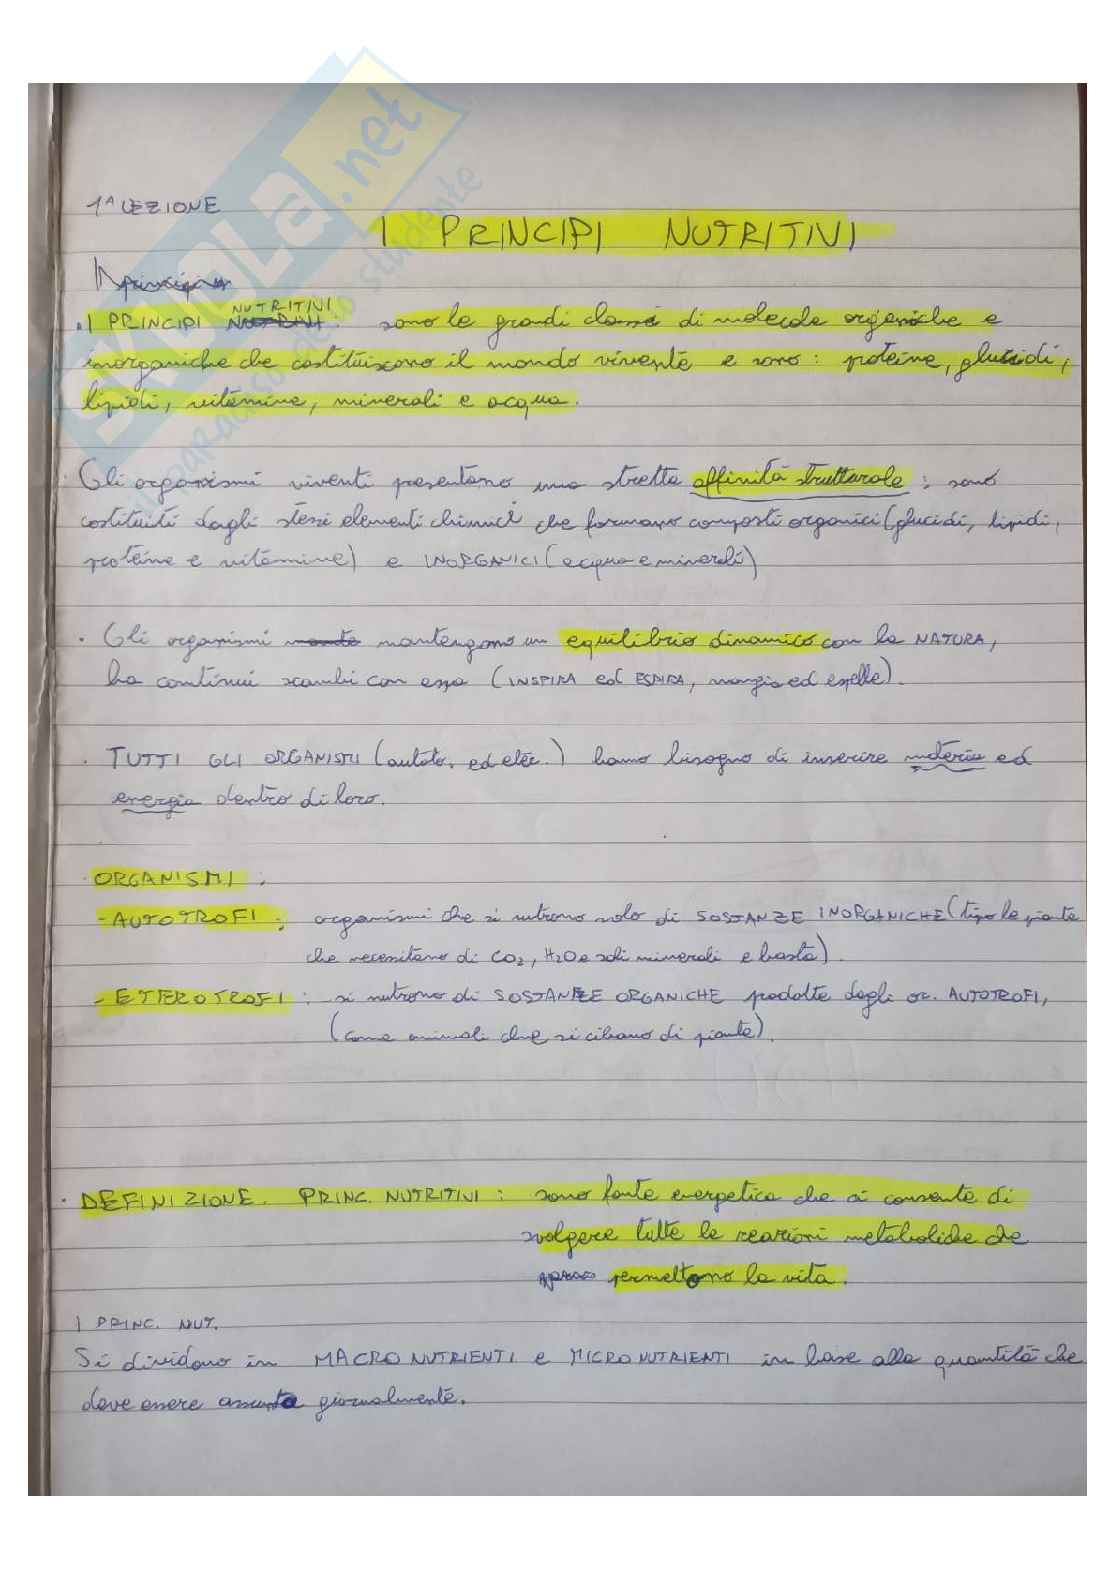 SKUOLA.net
il paradiso dello studente
1ᴬ LEZIONE
I PRINCIPI NUTRITIVI
I principi
NUTRITIVI
. I PRINCIPI : sono le grandi classi di molecole organiche e
inorganiche che costituiscono il mondo vivente e sono : proteine, glucidi,
lipidi, vitamine, minerali e acqua.
· Gli organismi viventi presentano una stretta affinità strutturale : sono
costituiti dagli stessi elementi chimici che formano composti organici (glucidi, lipidi,
proteine e vitamine) e INORGANICI (acqua e minerali)
· Gli organismi mantengono un equilibrio dinamico con la NATURA,
ha continui scambi con essa (INSPIRA ed ESPIRA, mangia ed espelle).
· TUTTI GLI ORGANISMI (autoto. ed eter.) hanno bisogno di inserire materia ed
energia dentro di loro.
· ORGANISMI :
- AUTOTROFI : organismi che si nutrono solo di SOSTANZE INORGANICHE (tipo le piante
che necessitano di CO₂, H₂O e sali minerali e basta).
- ETEROTROFI : si nutrono di SOSTANZE ORGANICHE prodotte dagli or. AUTOTROFI,
(come animali che si cibano di piante).
· DEFINIZIONE. PRINC. NUTRITIVI : sono fonte energetica che ci consente di
svolgere tutte le reazioni metaboliche che
permettono la vita.
I PRINC. NUT.
Si dividono in MACRONUTRIENTI e MICRONUTRIENTI in base alla quantità che
deve essere assunta giornalmente.